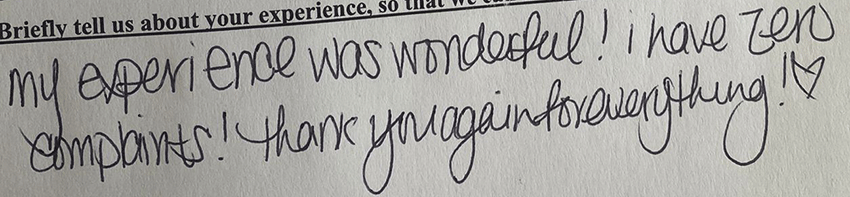 Briefly tell us about your experience, so that we
my experience was wonderful! i have zero
complaints! thank you again for everything!! ♡